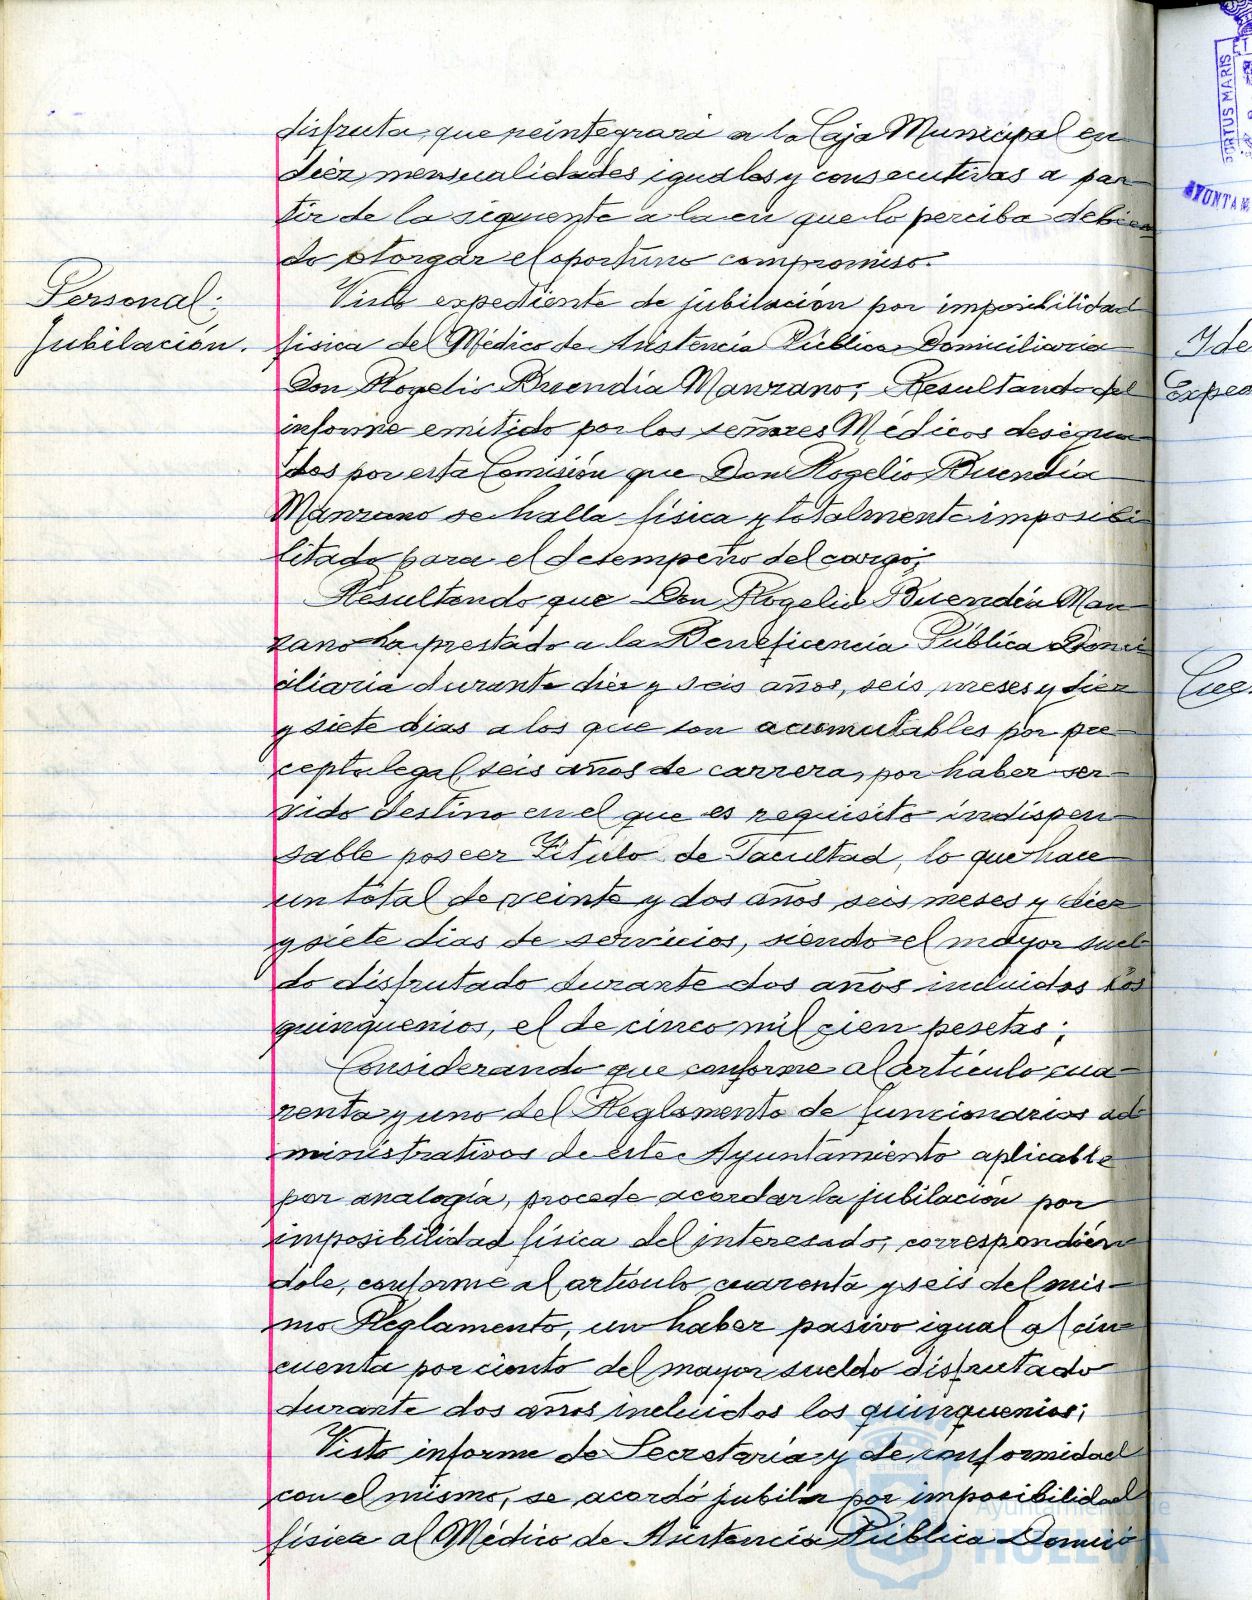 disfruta, que reintegrará a la Caja Municipal en
diez mensualidades iguales y consecutivas a par-
tir de la siguiente a la en que lo perciba debien-
do otorgar el oportuno compromiso.
Personal:
Jubilación.
Visto expediente de jubilación por imposibilidad
física del Médico de Asistencia Pública Domiciliaria
Don Rogelio Buendía Manzano; Resultando del
informe emitido por los señores Médicos designa-
dos por esta Comisión que Don Rogelio Buendía
Manzano se halla física y totalmente imposibi-
litado para el desempeño del cargo;
Resultando que Don Rogelio Buendía Man-
zano ha prestado a la Beneficencia Pública Domi-
ciliaria durante diez y seis años, seis meses y diez
y siete dias a los que son acumutables por pre-
cepto legal seis años de carrera, por haber ser-
vido destino en el que es requisito indispen-
sable poseer Título de Facultad, lo que hace
un total de veinte y dos años seis meses y diez
y siete dias de servicios, siendo el mayor suel-
do disfrutado durante dos años incluidos los
quinquenios, el de cinco mil cien pesetas;
Considerando que conforme al artículo cua-
renta y uno del Reglamento de funcionarios ad-
ministrativos de este Ayuntamiento aplicable
por analogía, procede acordar la jubilación por
imposibilidad física del interesado, correspondién-
dole, conforme al artículo cuarenta y seis del mis-
mo Reglamento, un haber pasivo igual al cin-
cuenta por ciento del mayor sueldo disfrutado
durante dos años incluidos los quinquenios;
Visto informe de Secretaría y de conformidad
con el mismo, se acordó jubilar por imposibilidad
física al Médico de Asistencia Pública Domici
Ayuntamiento de
HUELVA
PORTUS MARIS
AYUNTAM
Ide
Exped